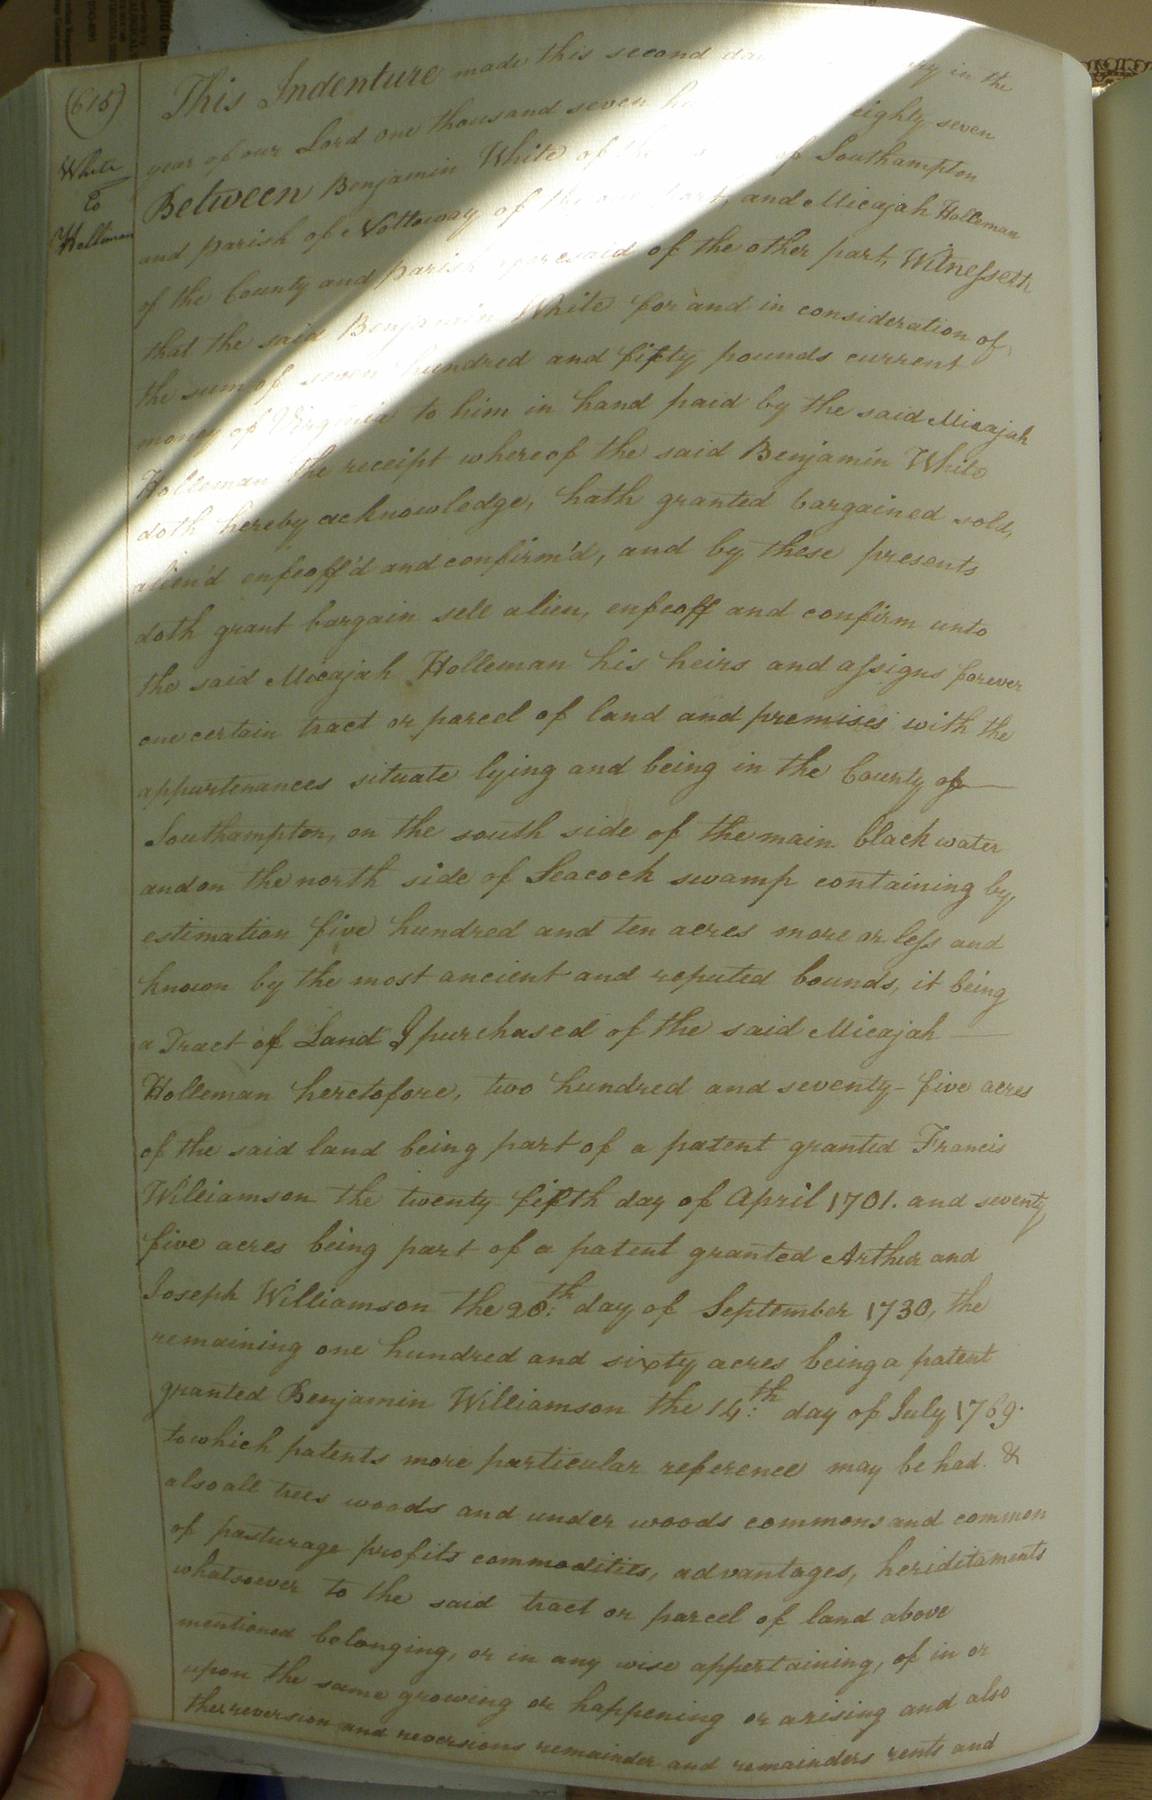 (615)
White
to
Holleman
This Indenture made this second in the
year of our Lord one thousand seven eighty seven
Between Benjamin White of of Southampton
and parish of Nottoway of the one part, and Micajah Holleman
of the County and parish aforesaid of the other part, Witnesseth
that the said Benjamin White for and in consideration of
the sum of seven hundred and fifty pounds current
money of Virginia to him in hand paid by the said Micajah
Holleman the receipt whereof the said Benjamin White
doth hereby acknowledge, hath granted bargained sold,
alien'd enfeoff'd and confirm'd, and by these presents
doth grant bargain sell alien, enfeoff and confirm unto
the said Micajah Holleman his heirs and assigns forever
one certain tract or parcel of land and premises with the
appurtenances situate lying and being in the County of
Southampton, on the south side of the main black water
and on the north side of Seacock swamp containing by
estimation five hundred and ten acres more or less and
known by the most ancient and reputed bounds, it being
a Tract of Land I purchased of the said Micajah
Holleman heretofore, two hundred and seventy-five acres
of the said land being part of a patent granted Francis
Williamson the twenty fifth day of April 1701. and seventy
five acres being part of a patent granted Arthur and
Joseph Williamson the 28:th day of September 1730, the
remaining one hundred and sixty acres being a patent
granted Benjamin Williamson the 14:th day of July 1769.
to which patents more particular reference may be had. &
also all trees woods and under woods commons and common
of pasturage profits commodities, advantages, heriditaments
whatsoever to the said tract or parcel of land above
mentioned belonging, or in any wise appertaining, of in or
upon the same growing or happening or arising and also
the reversion and reversions remainder and remainders rents and